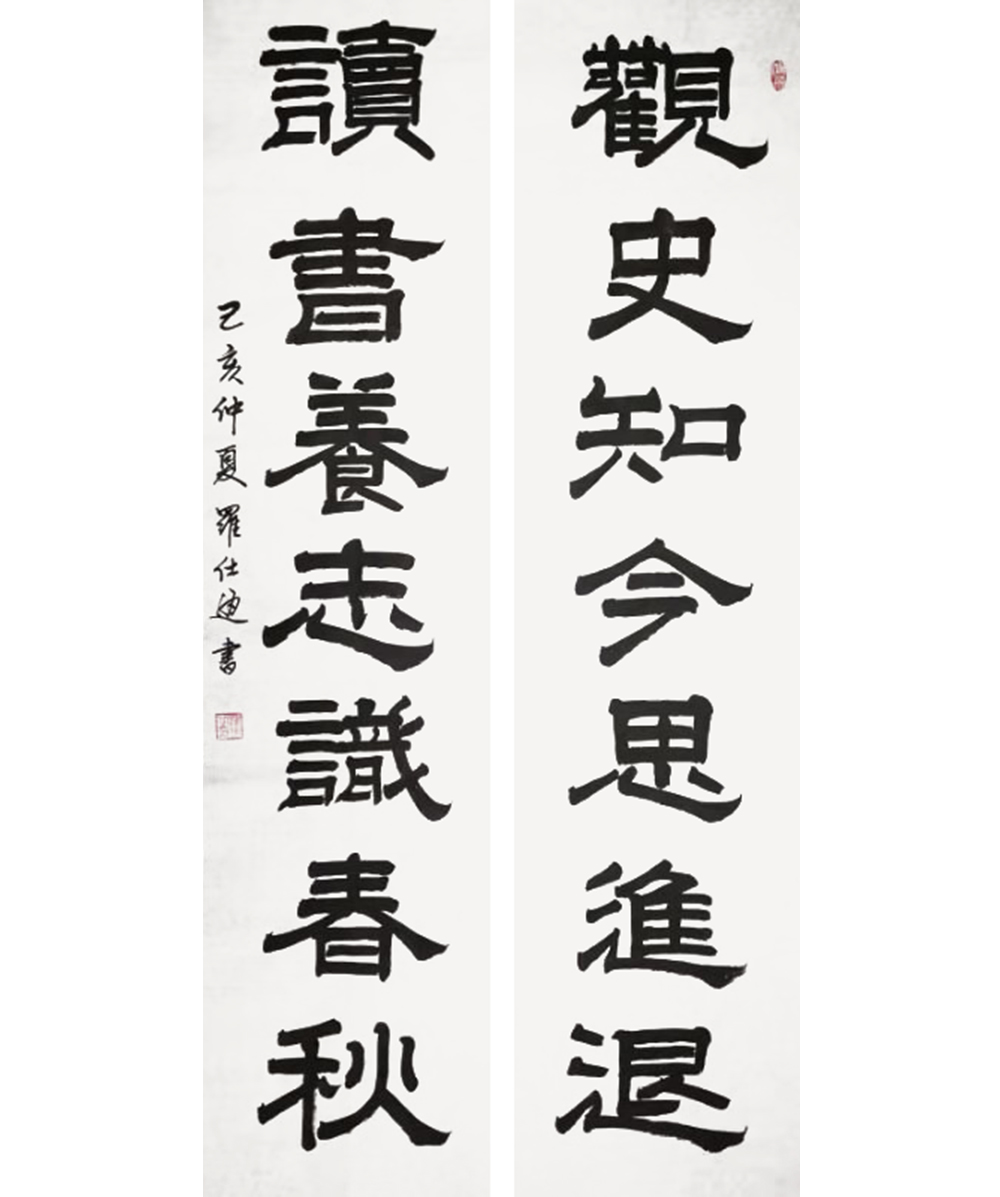 觀史知今思進退
讀書養志識春秋
己亥仲夏羅仕迪書